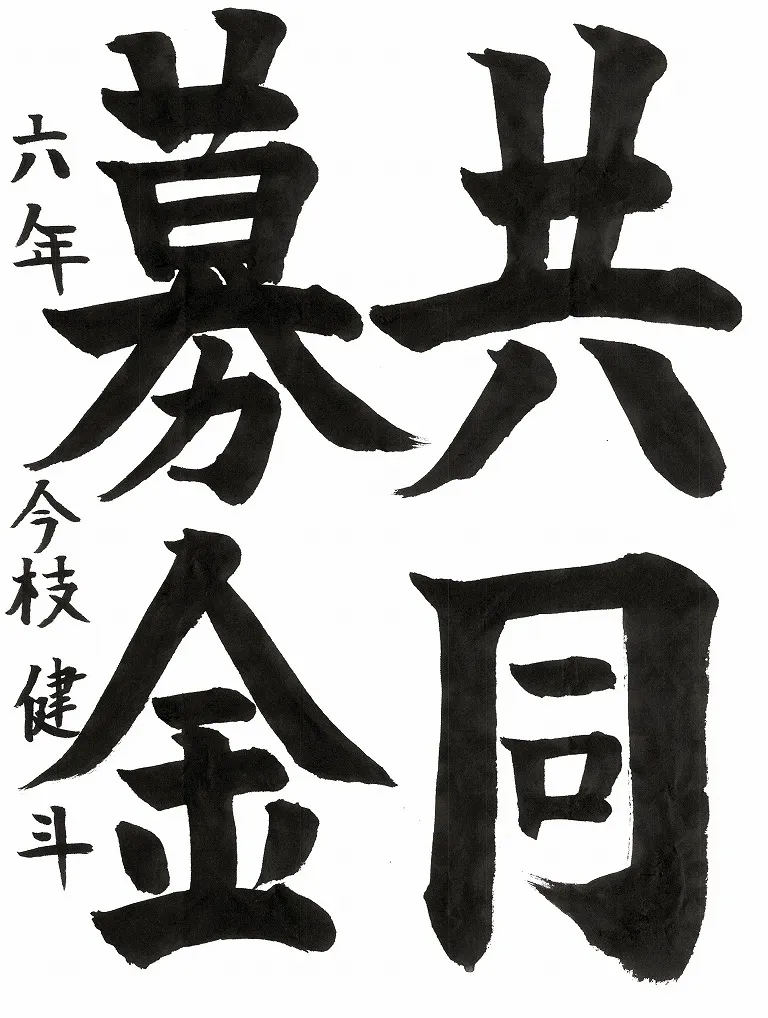 共同
募金
六年 今枝健斗